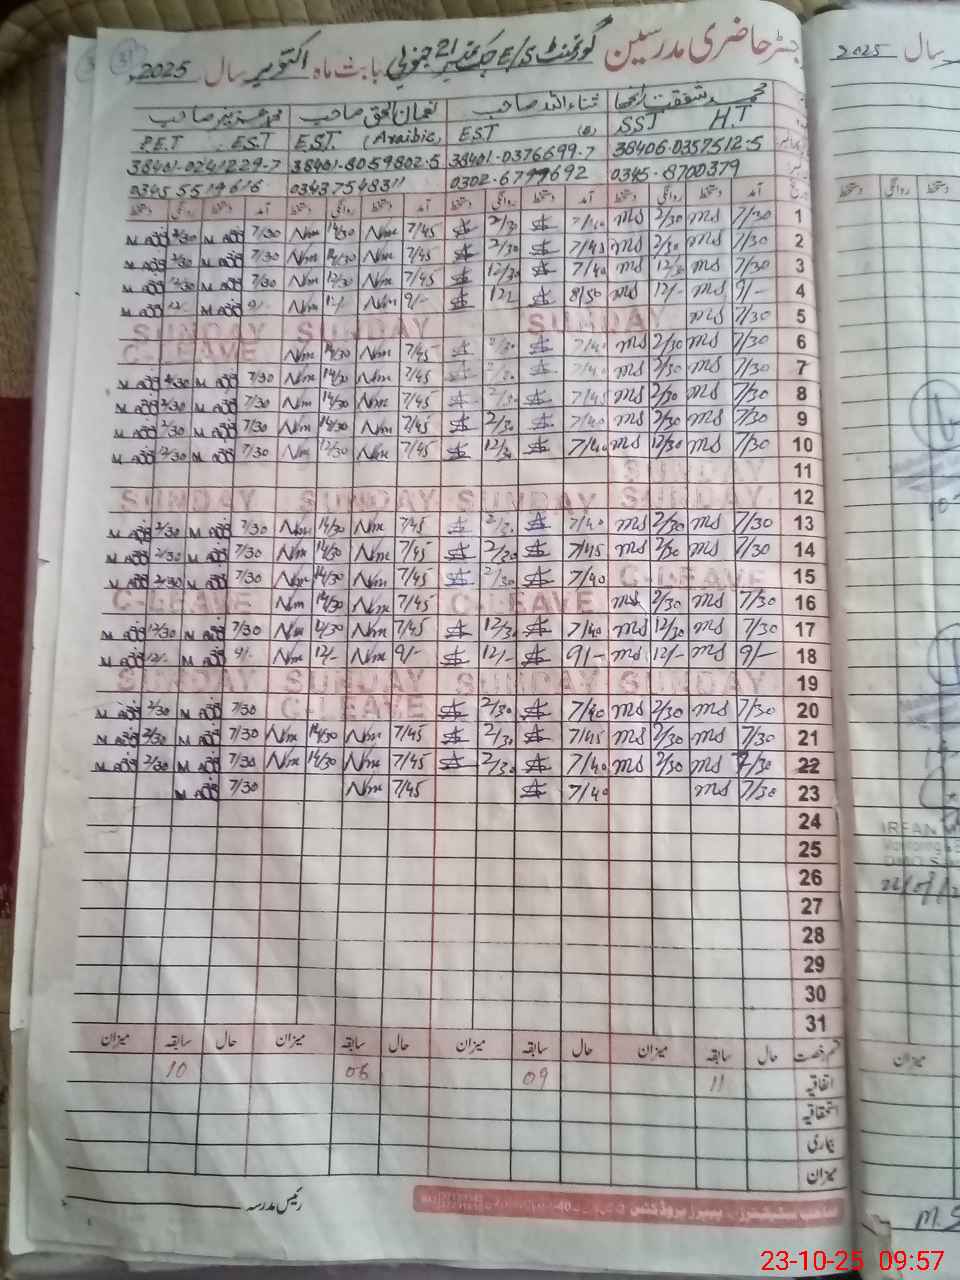 رجسٹر حاضری مدرسین گورنمنٹ E/S چک نمبر 21 جنوبی بابت ماہ اکتوبر سال 2025
محمد شفقت ثناء اللہ صاحب نعمان الحق صاحب صاحب
SST H.T E.S.T E.S.T (Araibic) P.E.T E.S.T
38406-0357512-5 38401-0376699-7 38401-8059802-5 38401-0241229-7
0345-8700379 0302-6799692 03437548311 0345 5519616
آمد دستخط روانگی دستخط آمد دستخط روانگی دستخط آمد دستخط روانگی دستخط آمد دستخط روانگی دستخط
1 7/30 ms 2/30 ms 7/40 2/30 7/45 Nm 14/30 Nm 7/30 2/30
2 7/30 ms 2/30 ms 7/45 2/30 7/45 Nm 14/30 Nm 7/30 2/30
3 7/30 ms 12/30 ms 7/40 12/30 7/45 Nm 12/30 Nm 7/30 12/30
4 9/- ms 12/- ms 8/50 12/- 9/- Nm 12/- Nm 9/- 12/-
5 7/30 ms SUNDAY SUNDAY SUNDAY
6 7/30 ms 2/30 ms 7/40 2/30 7/45 Nm 14/30 Nm C-LEAVE
7 7/30 ms 2/30 ms 7/40 2/30 7/45 Nm 14/30 Nm 7/30 2/30
8 7/30 ms 2/30 ms 7/45 2/30 7/45 Nm 14/30 Nm 7/30 2/30
9 7/30 ms 2/30 ms 7/40 2/30 7/45 Nm 14/30 Nm 7/30 2/30
10 7/30 ms 12/30 ms 7/40 12/30 7/45 Nm 12/30 Nm 7/30 12/30
11 SUNDAY
12 SUNDAY SUNDAY SUNDAY SUNDAY
13 7/30 ms 2/30 ms 7/40 2/30 7/45 Nm 14/30 Nm 7/30 2/30
14 7/30 ms 2/30 ms 7/45 2/30 7/45 Nm 14/30 Nm 7/30 2/30
15 C-LEAVE 7/40 2/30 7/45 Nm 14/30 Nm 7/30 2/30
16 7/30 ms 2/30 ms C-LEAVE 7/45 Nm 14/30 Nm C-LEAVE
17 7/30 ms 12/30 ms 7/40 12/30 7/45 Nm 12/30 Nm 7/30 12/30
18 9/- ms 12/- ms 9/- 12/- 9/- Nm 12/- Nm 9/- 12/-
19 SUNDAY SUNDAY SUNDAY SUNDAY
20 7/30 ms 2/30 ms 7/40 2/30 C-LEAVE 7/30 2/30
21 7/30 ms 2/30 ms 7/45 2/30 7/45 Nm 14/30 Nm 7/30 2/30
22 7/30 ms 2/30 ms 7/40 2/30 7/45 Nm 14/30 Nm 7/30 2/30
23 7/30 ms 7/40 7/45 Nm 7/30
24
25
26
27
28
29
30
31
قسم رخصت حال سابقہ میزان حال سابقہ میزان حال سابقہ میزان حال سابقہ میزان
اتفاقیہ 11 09 06 10
استحقاقیہ
بیماری
میزان
رئیس مدرسہ
سال 2025
روانگی دستخط
IRFAN
Monitoring
میزان
M.S
23-10-25 09:57